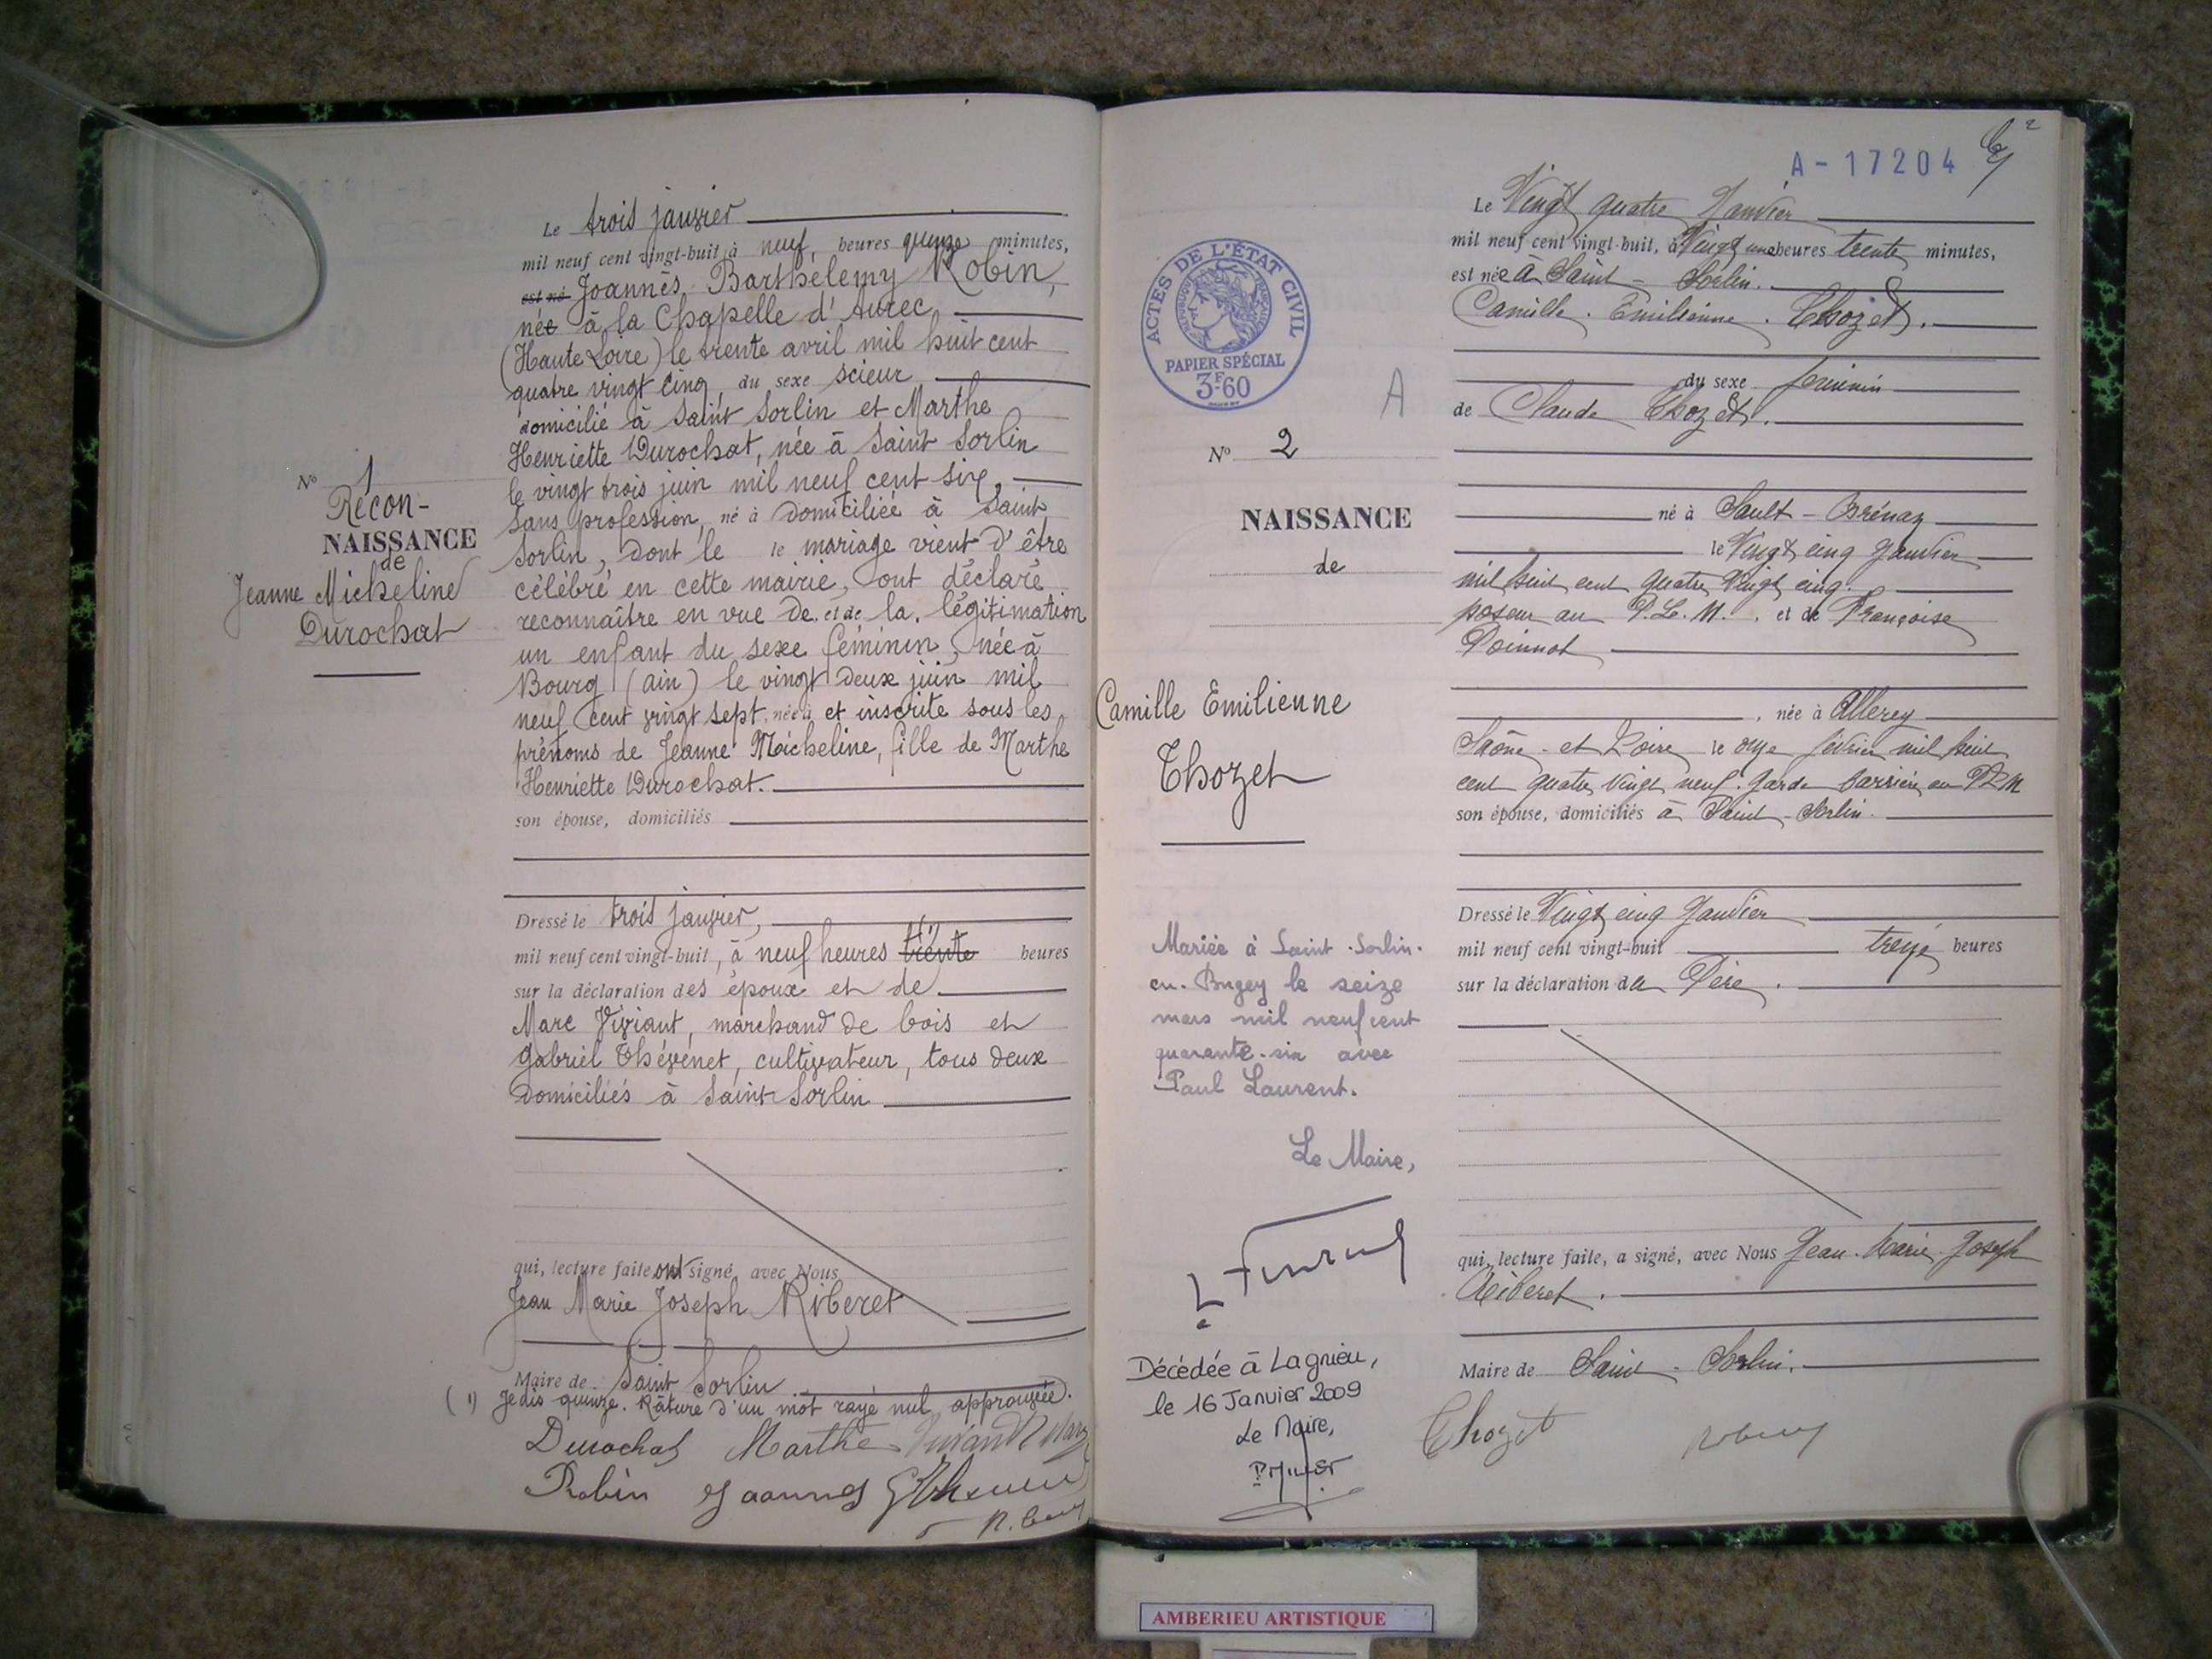 Le trois janvier
mil neuf cent vingt-huit à neuf heures quinze minutes,
est né Joannès Barthélemy Robin,
née à la Chapelle d'Aurec
(Haute Loire) le trente avril mil huit cent
quatre vingt cinq, du sexe scieur
domicilié à Saint Sorlin et Marthe
Henriette Durochat, née à Saint Sorlin
le vingt trois juin mil neuf cent six,
sans profession, né à domiciliée à Saint
Sorlin, dont le le mariage vient d'être
célébré en cette mairie, ont déclaré
reconnaître en vue de et de la légitimation
un enfant du sexe féminin, née à
Bourg (ain) le vingt deux juin mil
neuf cent vingt sept, née à et inscrite sous les
prénoms de Jeanne Micheline, fille de Marthe
Henriette Durochat.
son épouse, domiciliés
No 1
Recon-
NAISSANCE
de
Jeanne Micheline
Durochat
Dressé le trois janvier,
mil neuf cent vingt-huit, à neuf heures trente (1) heures
sur la déclaration des époux et de
Marc Viviant, marchand de bois et
Gabriel Thévenet, cultivateur, tous deux
domiciliés à Saint Sorlin
qui, lecture faite ont signé avec Nous
Jean Marie Joseph Riberet
Maire de Saint Sorlin
(1) Je dis quinze. Rature d'un mot rayé nul approuvée.
Durochat Marthe
Robin Joannes
A-17204
2
ACTES DE L'ÉTAT CIVIL
RÉPUBLIQUE FRANÇAISE
PAPIER SPÉCIAL
3F60
A
No 2
NAISSANCE
de
Camille Emilienne
Thozet
Mariée à Saint-Sorlin-
en-Bugey le seize
mars mil neuf cent
quarante-six avec
Paul Laurent.
Le Maire,
Décédée à Lagnieu,
le 16 Janvier 2009
Le Maire,
Le Vingt quatre Janvier
mil neuf cent vingt-huit, à Vingt une heures trente minutes,
est née à Saint-Sorlin.
Camille. Emilienne. Thozet.
du sexe féminin
de Claude Thozet.
né à Sault-Brénaz
le Vingt cinq Janvier
mil huit cent quatre Vingt cinq.
poseur au P.L.M., et de Françoise
Poinnot
, née à Allerey
Saône-et-Loire le onze février mil huit
cent quatre Vingt neuf. Garde barrière au PLM
son épouse, domiciliés à Saint-Sorlin.
Dressé le Vingt cinq Janvier
mil neuf cent vingt-huit treize heures
sur la déclaration du Père.
qui, lecture faite, a signé, avec Nous Jean-Marie Joseph
Riberet.
Maire de Saint-Sorlin.
Thozet
AMBERIEU ARTISTIQUE